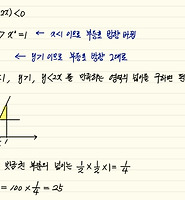 2x) < 0
> x = 1 ← x<1 이므로 부등호 방향 바뀜
← y>1 이므로 부등호 방향 그대로
<1, y>1, y<2x 를 만족하는 영역의 넓이를 구하면 된
색칠한 부분의 넓이는 1/2 × 1/2 × 1 = 1/4
= 100 × 1/4 = 25